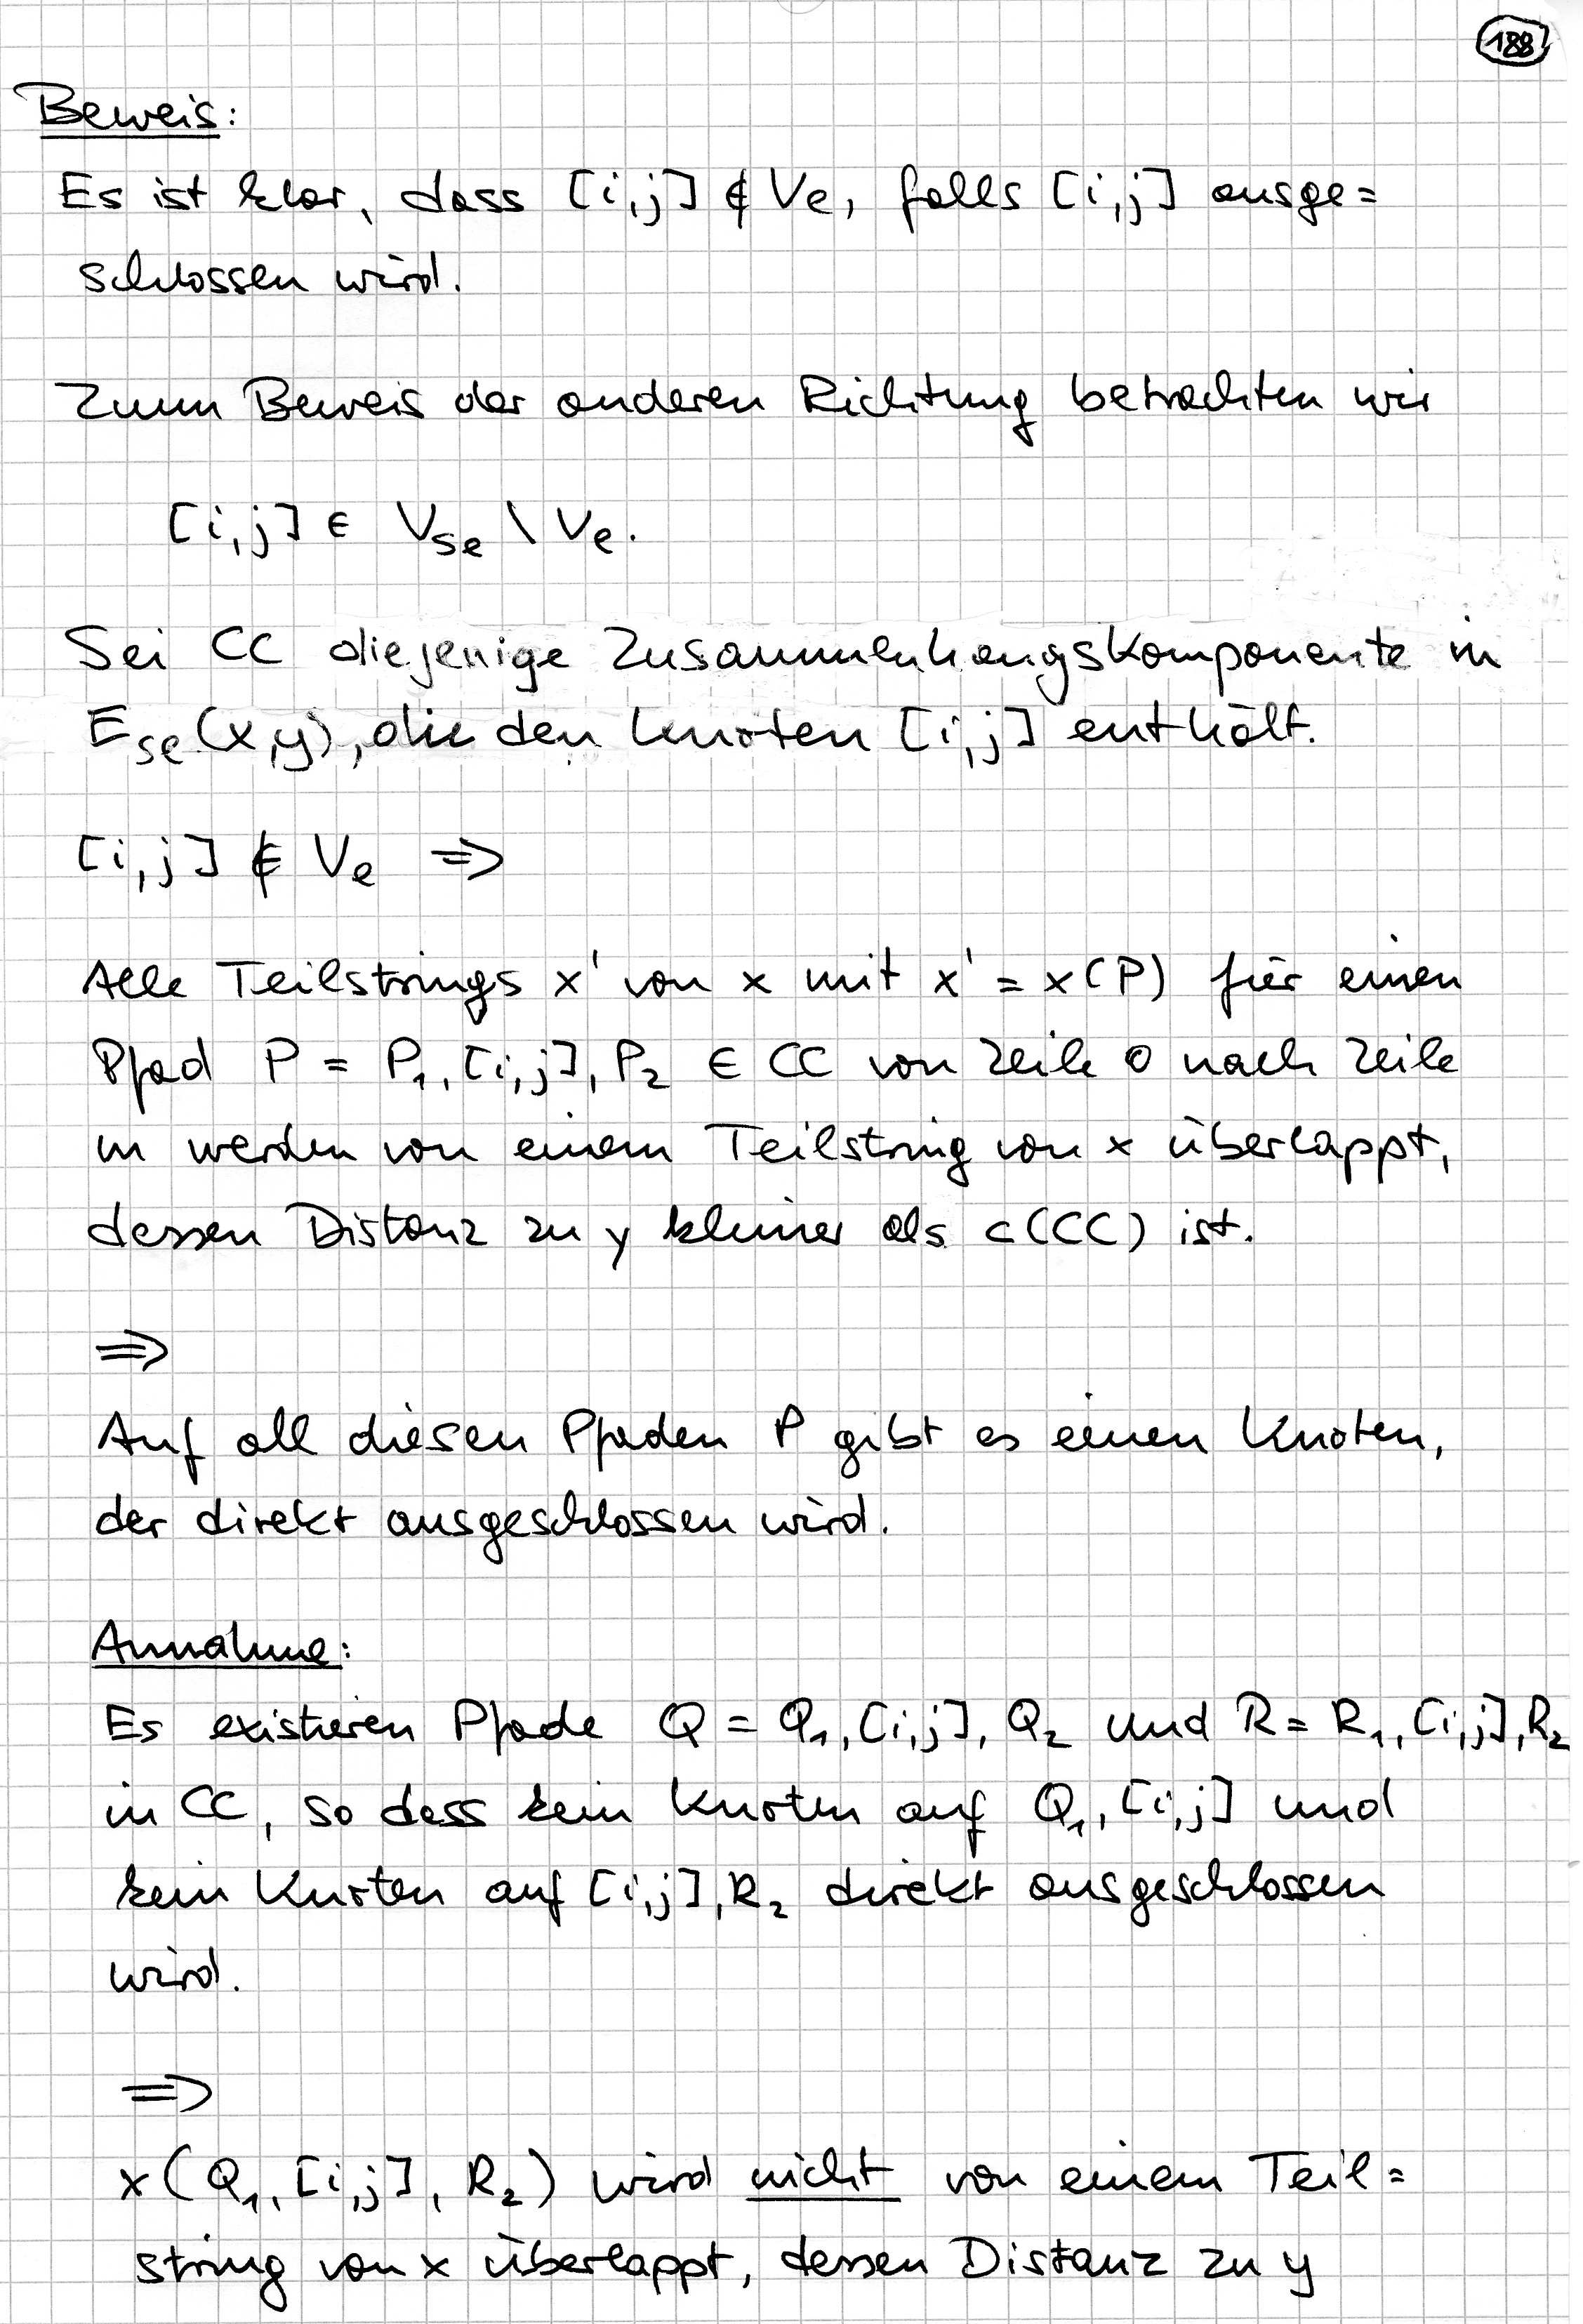 188
Beweis:
Es ist klar, dass [i,j] ∉ Ve, falls [i,j] ausge=
schlossen wird.
Zum Beweis der anderen Richtung betrachten wir
[i,j] ∈ V_se \ V_e.
Sei CC diejenige Zusammenhangskomponente in
E_se(x,y), die den Knoten [i,j] enthält.
[i,j] ∉ V_e ⇒
Alle Teilstrings x' von x mit x' = x(P) für einen
Pfad P = P₁, [i,j], P₂ ∈ CC von Zeile 0 nach Zeile
m werden von einem Teilstring von x überlappt,
dessen Distanz zu y kleiner als c(CC) ist.
⇒
Auf all diesen Pfaden P gibt es einen Knoten,
der direkt ausgeschlossen wird.
Annahme:
Es existieren Pfade Q = Q₁, [i,j], Q₂ und R = R₁, [i,j], R₂
in CC, so dass kein Knoten auf Q₁, [i,j] und
kein Knoten auf [i,j], R₂ direkt ausgeschlossen
wird.
⇒
x(Q₁, [i,j], R₂) wird nicht von einem Teil=
string von x überlappt, dessen Distanz zu y